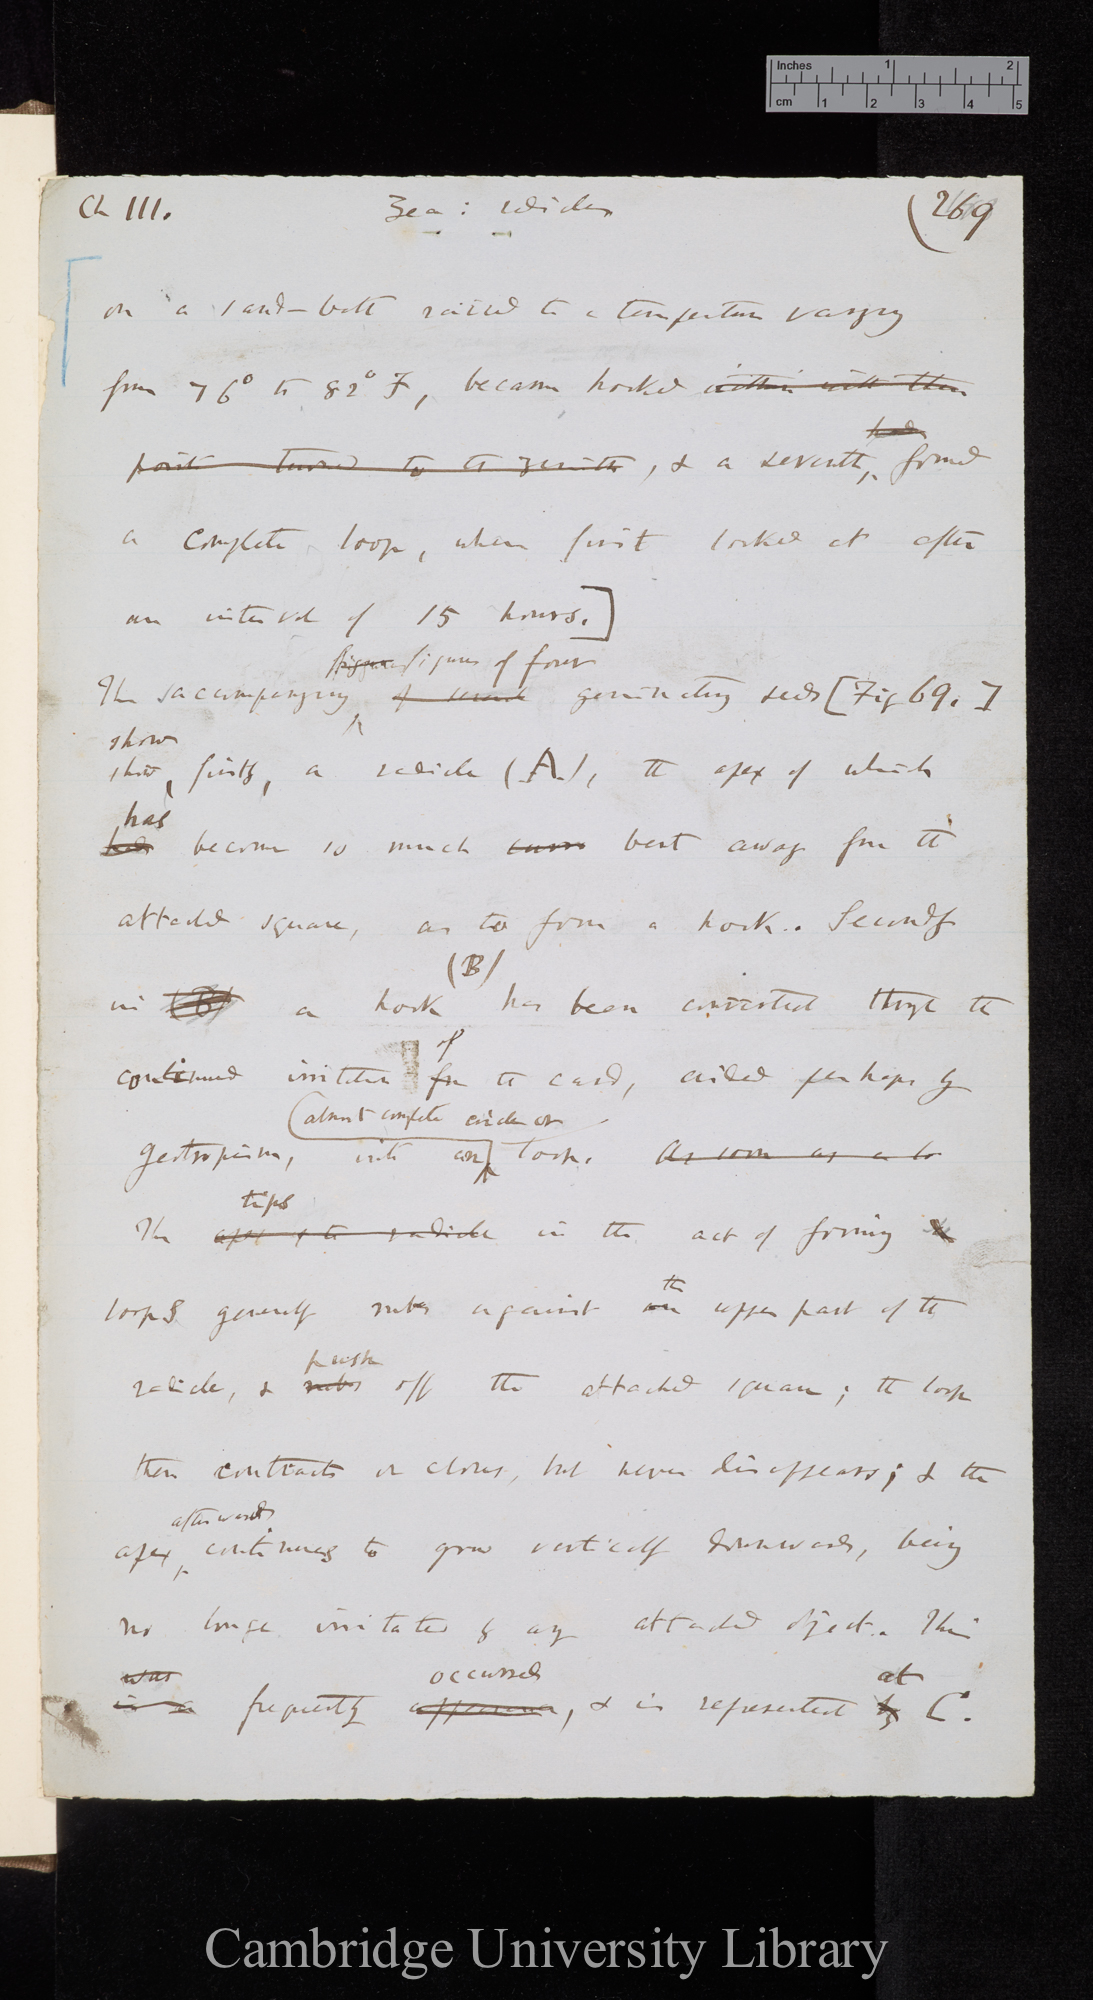 Inches 1 2
cm 1 2 3 4 5
Ch III. Zea: radicles (269
on a sand-bath raised to a temperature varying
from 76° to 82° F, became hooked within with their
point turned to the zenith, & a seventh, had formed
a complete loop, when first looked at after
an interval of 15 hours.]
figures figures of four
The accompanying of several germinating seeds [Fig 69.]
show
show, firstly, a radicle (A), the apex of which
has
has become so much curve bent away from the
attached square, as to form a hook. Secondly
(B)
in (B) a hook has been converted through the
of
continued irritation from the card, aided perhaps by
(almost complete circle or
geotropism, into an loop. As soon as a lo
tips
The apex of the radicle in the act of forming a
the
loops generally rubs against an upper part of the
push
radicle, & rubs off the attached square; the loop
then contracts or closes, but never disappears; & the
afterwards
apex, continues to grow vertically downwards, being
no longer irritated by any attached object. This
was occurred at
is a frequently appearance, & is represented by C.
Cambridge University Library